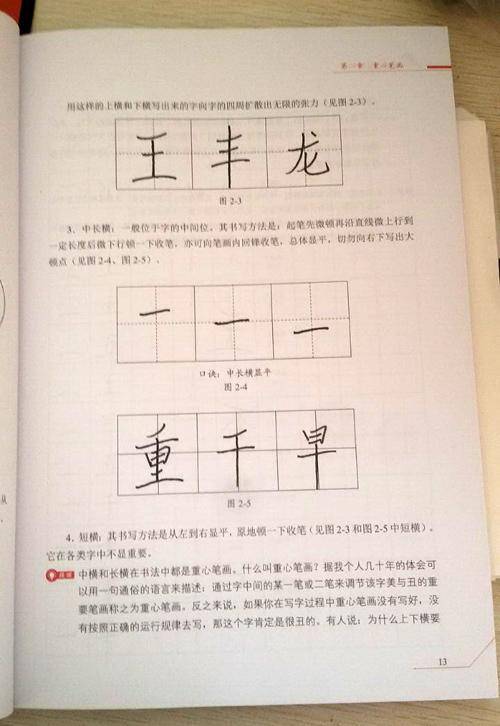 第二章 重心笔画
用这样的上横和下横写出来的字向字的四周扩散出无限的张力（见图2-3）。
王 丰 龙
图2-3
3. 中长横：一般位于字的中间位。其书写方法是：起笔先微顿再沿直线微上行到
一定长度后微下行顿一下收笔，亦可向笔画内回锋收笔，总体显平，切勿向右下写出大
顿点（见图2-4、图2-5）。
一 一 一
口诀：中长横显平
图2-4
重 千 旱
图2-5
4. 短横：其书写方法是从左到右显平，原地顿一下收笔（见图2-3和图2-5中短横）。
它在各类字中不显重要。
中横和长横在书法中都是重心笔画。什么叫重心笔画？据我个人几十年的体会可
以用一句通俗的语言来描述：通过字中间的某一笔或二笔来调节该字美与丑的重
要笔画称之为重心笔画。反之来说，如果你在写字过程中重心笔画没有写好，没
有按照正确的运行规律去写，那这个字肯定是很丑的。有人说：为什么上下横要
13